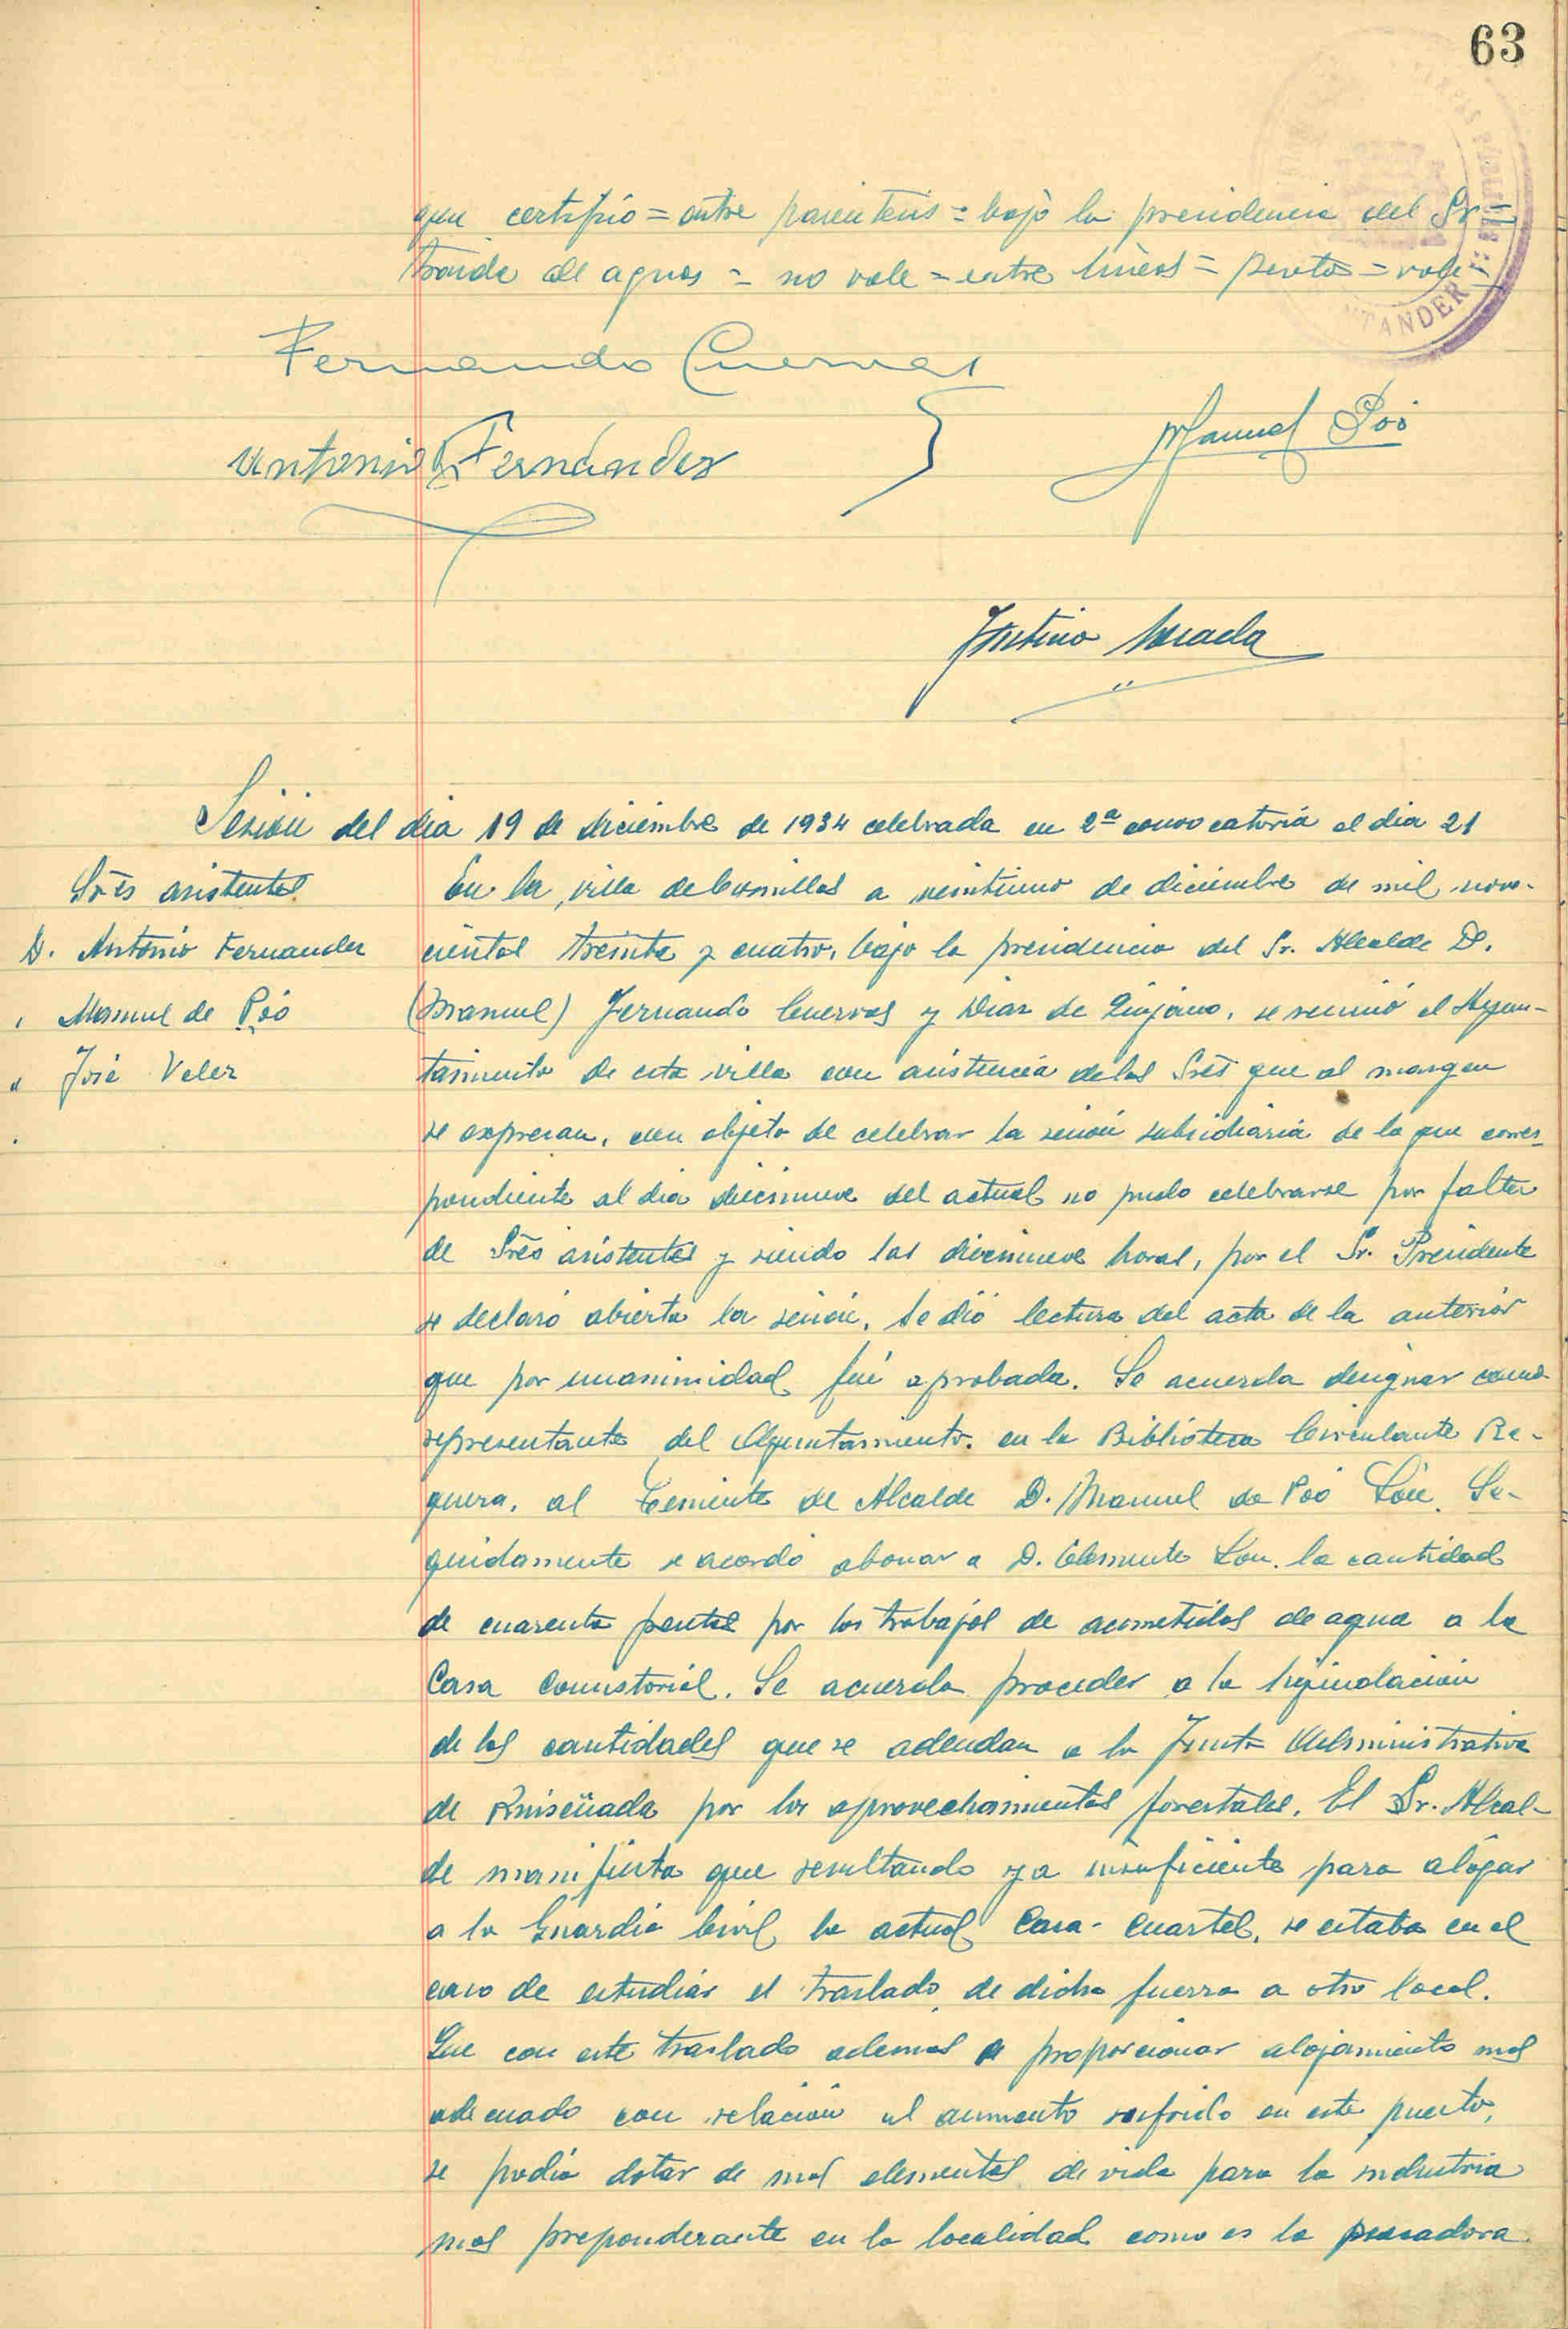 63
que certifico = entre parentesis = bajo la presidencia del Sr =
traida de aguas = no vale = entre lineas = = vale =
TANDER
Fernando Cuevas
Antonio Fernández
Manuel Poo
Sesión del dia 19 de diciembre de 1934 celebrada en 2ª convocatoria el dia 21
Sres asistentes
D. Antonio Fernandez
" Manuel de Poo
" José Velez
En la villa de Comillas a veintiuno de diciembre de mil nove-
cientos treinta y cuatro, bajo la presidencia del Sr. Alcalde D.
(Manuel) Fernando Cuevas y Diaz de Quijano, se reunió el Ayun-
tamiento de esta villa con asistencia de los Sres que al margen
se expresan, con objeto de celebrar la sesión subsidiaria de la que corres-
pondiente al dia diecinueve del actual no pudo celebrarse por falta
de Sres asistentes y siendo las diecinueve horas, por el Sr. Presidente
se declaró abierta la sesión. Se dió lectura del acta de la anterior
que por unanimidad fué aprobada. Se acuerda designar como
representante del Ayuntamiento en la Biblioteca Circulante Re-
guera, al Teniente de Alcalde D. Manuel de Poo Lou. Se-
guidamente se acordó abonar a D. Clemente Lou la cantidad
de cuarenta pesetas por los trabajos de acometidas de agua a la
Casa Consistorial. Se acuerda proceder a la liquidación
de las cantidades que se adeudan a la Junta Administrativa
de Ruiseñada por los aprovechamientos forestales. El Sr. Alcal-
de manifiesta que resultando ya insuficiente para alojar
a la Guardia Civil la actual Casa-Cuartel, se estaba en el
caso de estudiar el traslado de dicha fuerza a otro local.
Que con este traslado ademas proporcionar alojamiento mas
adecuado con relación al aumento sufrido en este puesto,
se podia dotar de mas elementos de vida para la industria
mas preponderante en la localidad como es la pescadora